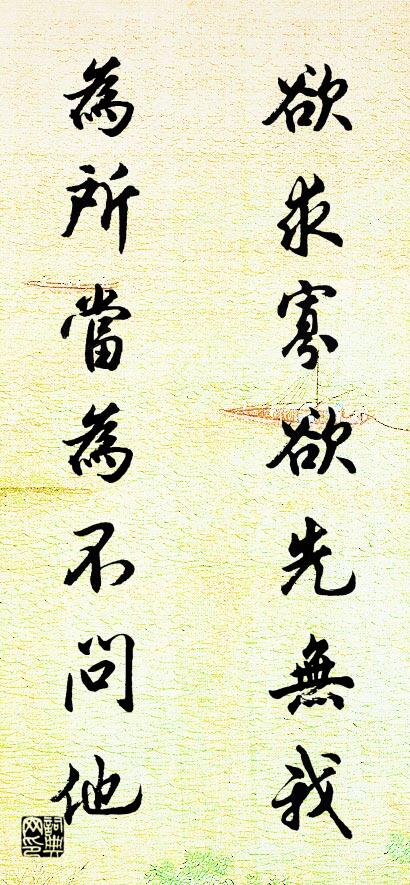 欲求寡欲先無我
為所當為不問他
詞典网印